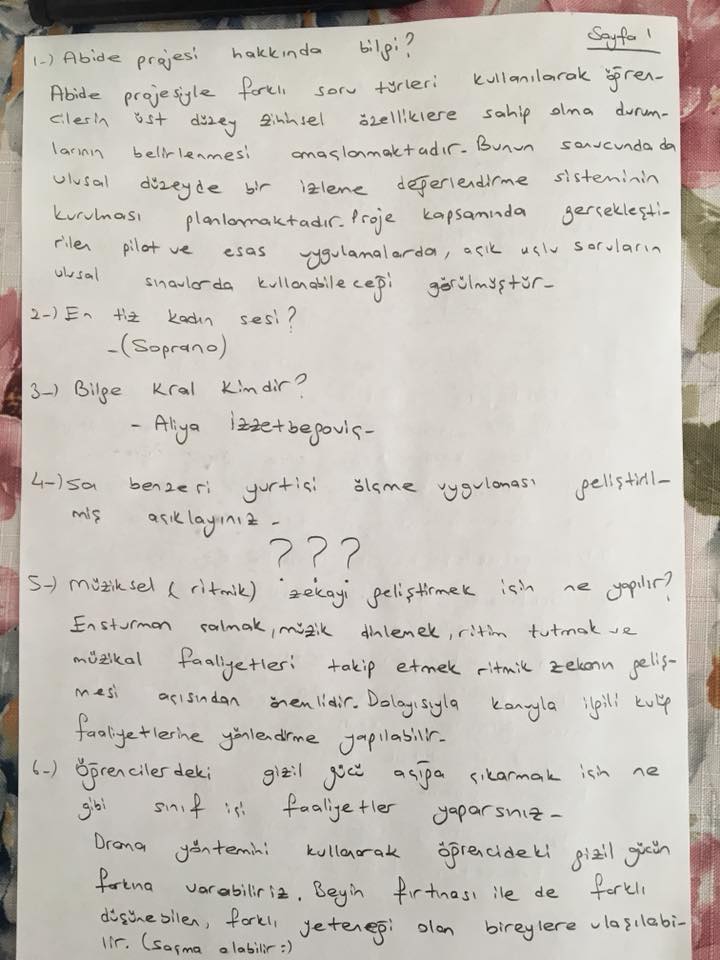 Sayfa 1
1-) Abide projesi hakkında bilgi?
Abide projesiyle farklı soru türleri kullanılarak öğren-
cilerin üst düzey zihhsel özelliklere sahip olma durum-
larının belirlenmesi amaçlanmaktadır. Bunun sonucunda da
ulusal düzeyde bir izleme değerlendirme sisteminin
kurulması planlanmaktadır. Proje kapsamında gerçekleşti-
rilen pilot ve esas uygulamalarda, açık uçlu soruların
ulusal sınavlarda kullanabileceği görülmüştür-
2-) En tiz kadın sesi?
-(Soprano)
3-) Bilge Kral Kimdir?
- Aliya İzzetbegoviç-
4-) benzeri yurtiçi ölçme uygulaması geliştiril-
miş açıklayınız-
???
5-) Müziksel (ritmik) zekayi geliştirmek için ne yapılır?
Ensturman çalmak, müzik dinlemek, ritim tutmak ve
müzikal faaliyetleri takip etmek ritmik zekanın geliş-
mesi açısından önemlidir. Dolayısıyla konuyla ilgili kulüp
faaliyetlerine yönlendirme yapılabilir-
6-) Öğrencilerdeki gizil gücü açığa çıkarmak için ne
gibi sınıf içi faaliyetler yaparsınız-
Drama yöntemini kullanarak öğrencideki gizil gücün
farkına varabiliriz. Beyin fırtınası ile de farklı
düşünebilen, farklı yeteneği olan bireylere ulaşılabi-
lir. (saçma olabilir :)